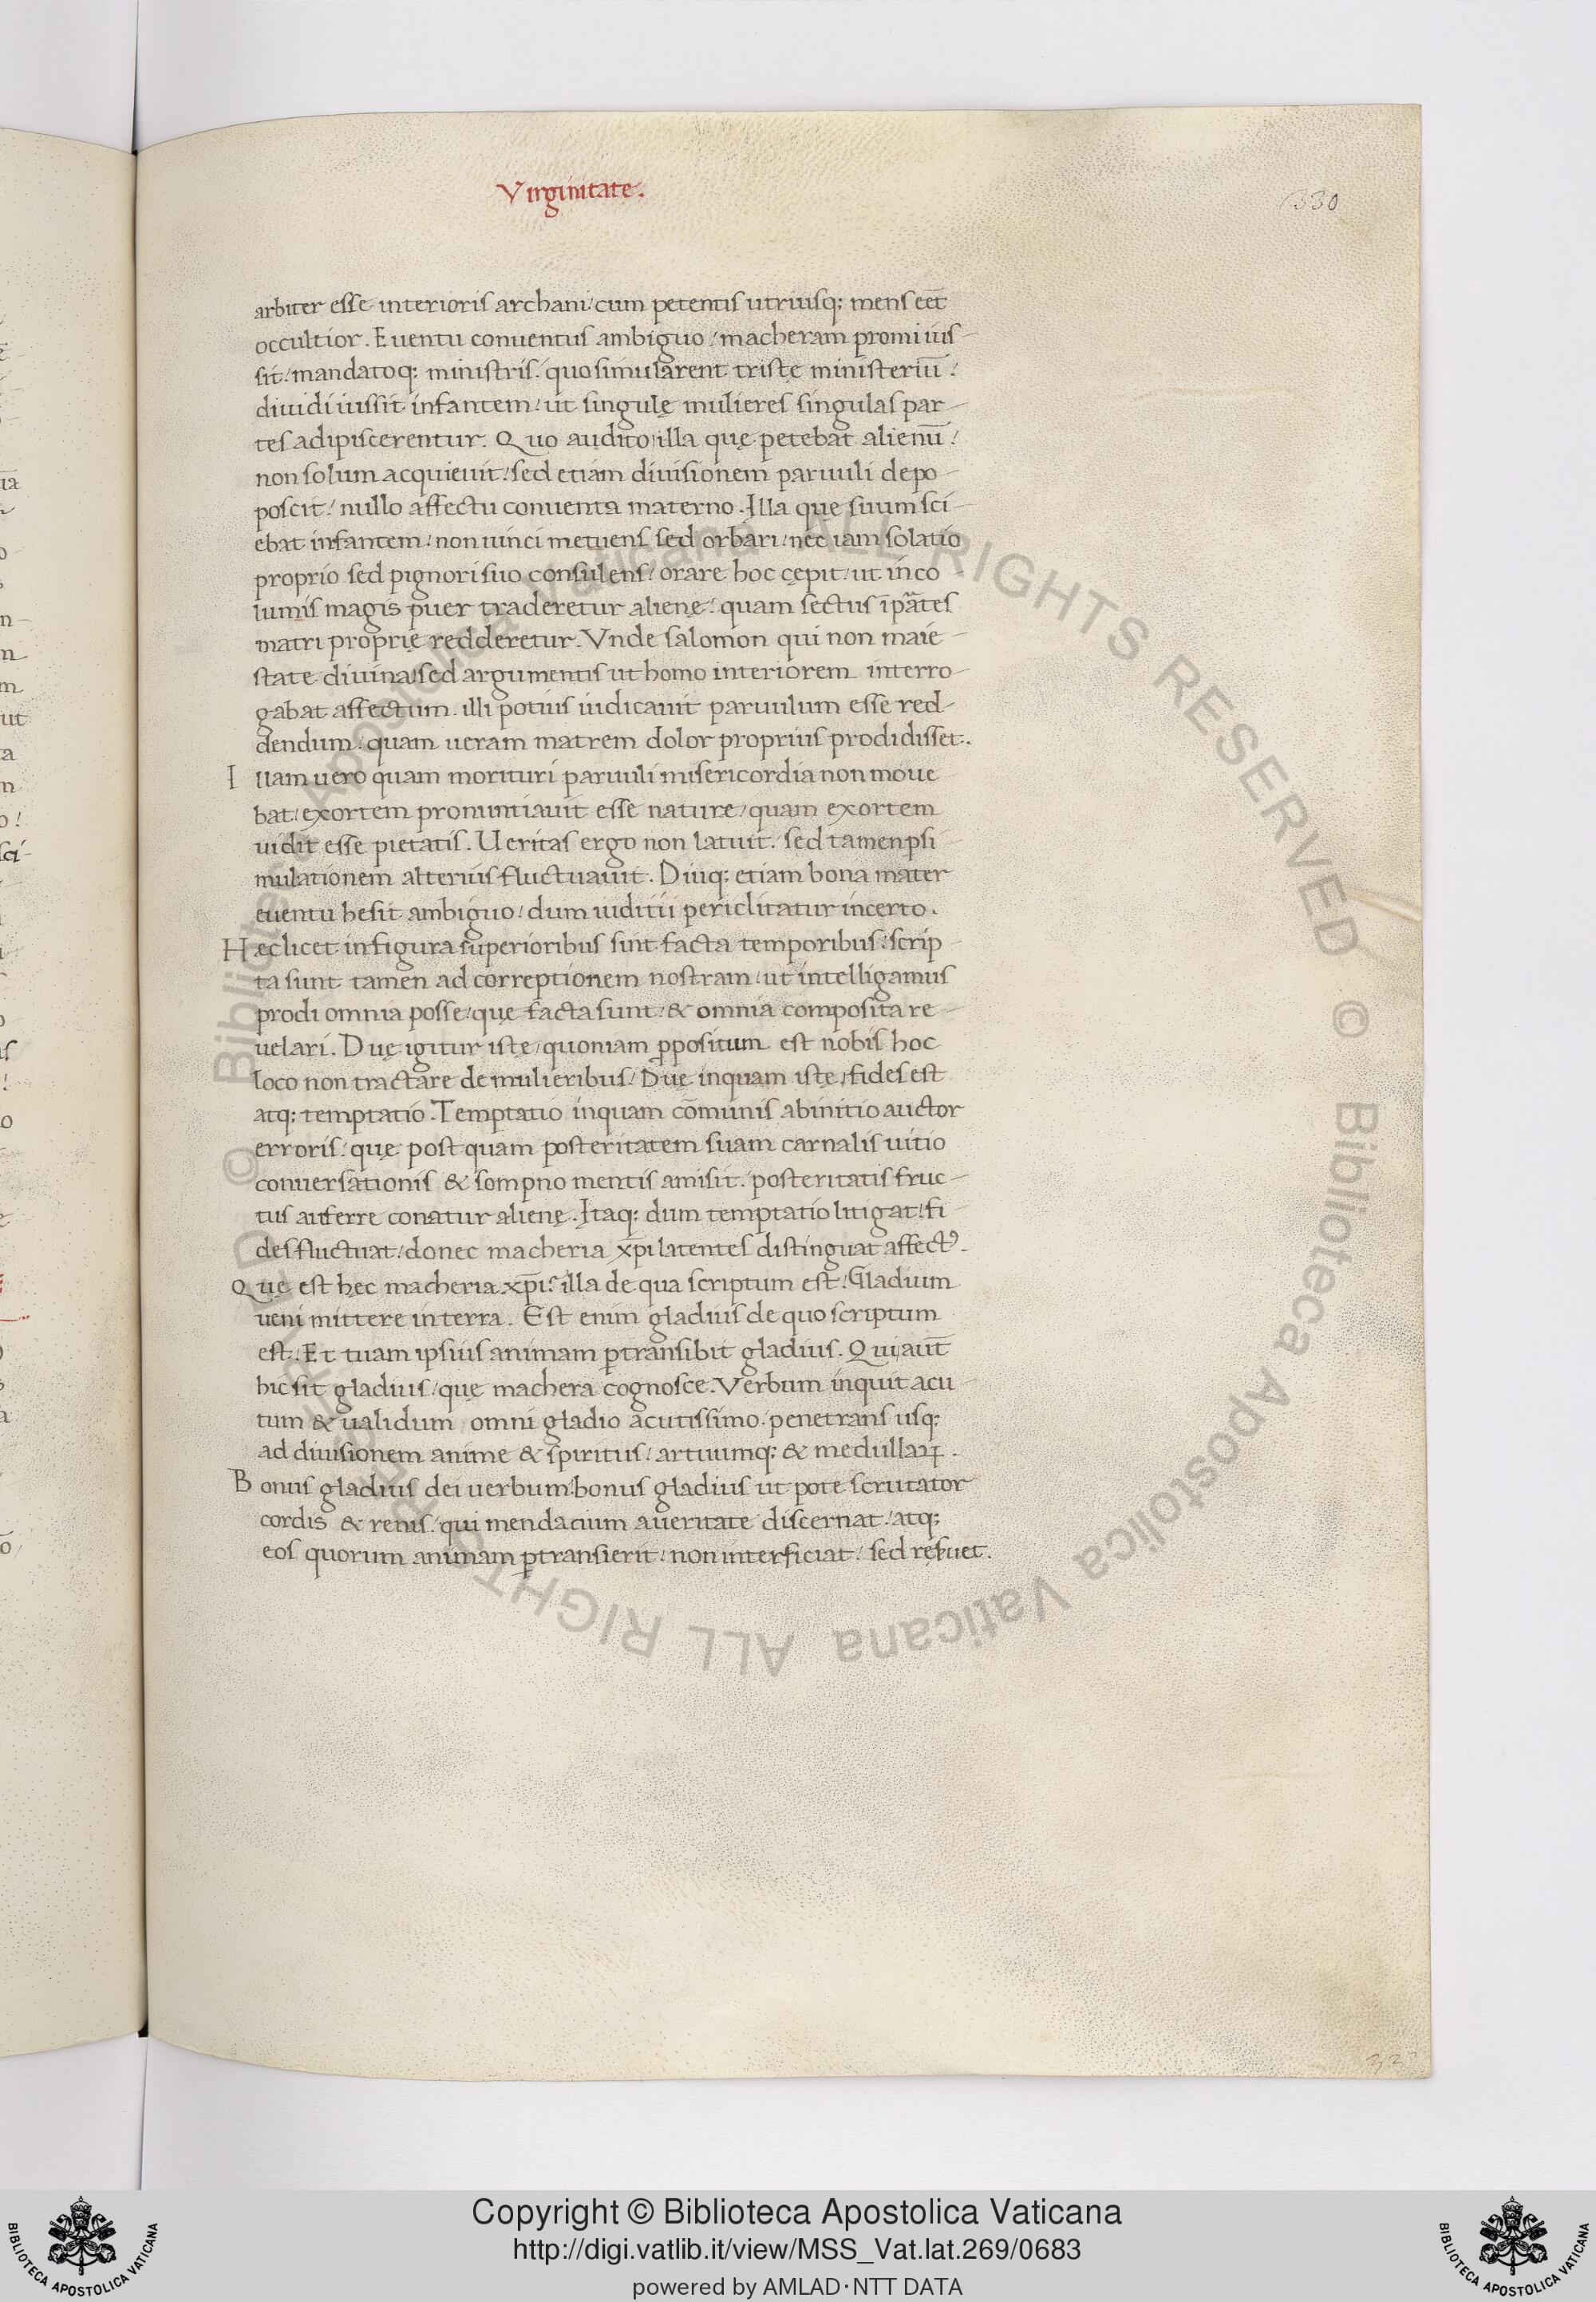 Virginitate.
330
arbiter esse interioris archani / cum petentis utriusq; mens eēt
occultior. Euentu conuentus ambiguo / macheram promi ius
sit / mandatoq; ministris. quo simularent tristę ministeriū /
diuidi iussit infantem / ut singulę mulieres singulas par-
tes adipiscerentur. Quo audito / illa quę petebat alienū /
non solum acquieuit / sed etiam diuisionem paruuli depo-
poscit / nullo affectu conuenta materno. Illa que suum sci-
ebat infantem / non uinci metuens sed orbari / nec iam solatio
proprio sed pignori suo consulens / orare hoc cępit / ut inco-
lumis magis puer traderetur alienę / quam sectus
matri proprię redderetur. Vnde salomon qui non maie-
state diuina / sed argumentis ut homo interiorem interro-
gabat affectum. illi potius iudicauit paruulum esse red-
dendum / quam ueram matrem dolor proprius prodidisset.
Illam uero quam morituri paruuli misericordia non moue
bat / exortem pronuntiauit esse naturę / quam exortem
uidit esse pietatis. Ueritas ergo non latuit. sed tamen ꝑ si
mulationem alterius fluctuauit. Diuq; etiam bona mater
euentu hesit ambiguo / dum iuditii periclitatur incerto.
Hæc licet in figura superioribus sint facta temporibus / scrip-
ta sunt tamen ad correptionem nostram / ut intelligamus
prodi omnia posse / quę facta sunt / & omnia composita re-
uelari. Duę igitur istę / quoniam ꝓpositum est nobis hoc
loco non tractare de mulieribus / Duę inquam istę / fides est
atq; temptatio. Temptatio inquam cōmunis ab initio auctor
erroris / quę post quam posteritatem suam carnalis uitio
conuersationis & sompno mentis amisit / posteritatis fruc-
tus auferre conatur alienę. Itaq; dum temptatio litigat / fi-
des fluctuat / donec macheria xp̄i latentes distinguat affectꝰ.
Quę est hęc macheria xp̄i? illa de qua scriptum est / Gladium
ueni mittere in terra. Est enim gladius de quo scriptum
est / Et tuam ipsius animam ꝑtransibit gladius. Qui aut̄
hic sit gladius / quę machera cognosce. Verbum inquit acu
tum & ualidum omni gladio acutissimo / penetrans usq;
ad diuisionem anime & spiritus / artuumq; & medullaꝝ.
Bonus gladius dei uerbum / bonus gladius ut pote scrutator
cordis & renis / qui mendacium a ueritate discernat / atq;
eos quorum animam ꝑtransierit / non interficiat / sed reseruet.
Copyright © Biblioteca Apostolica Vaticana
http://digi.vatlib.it/view/MSS_Vat.lat.269/0683
powered by AMLAD・NTT DATA